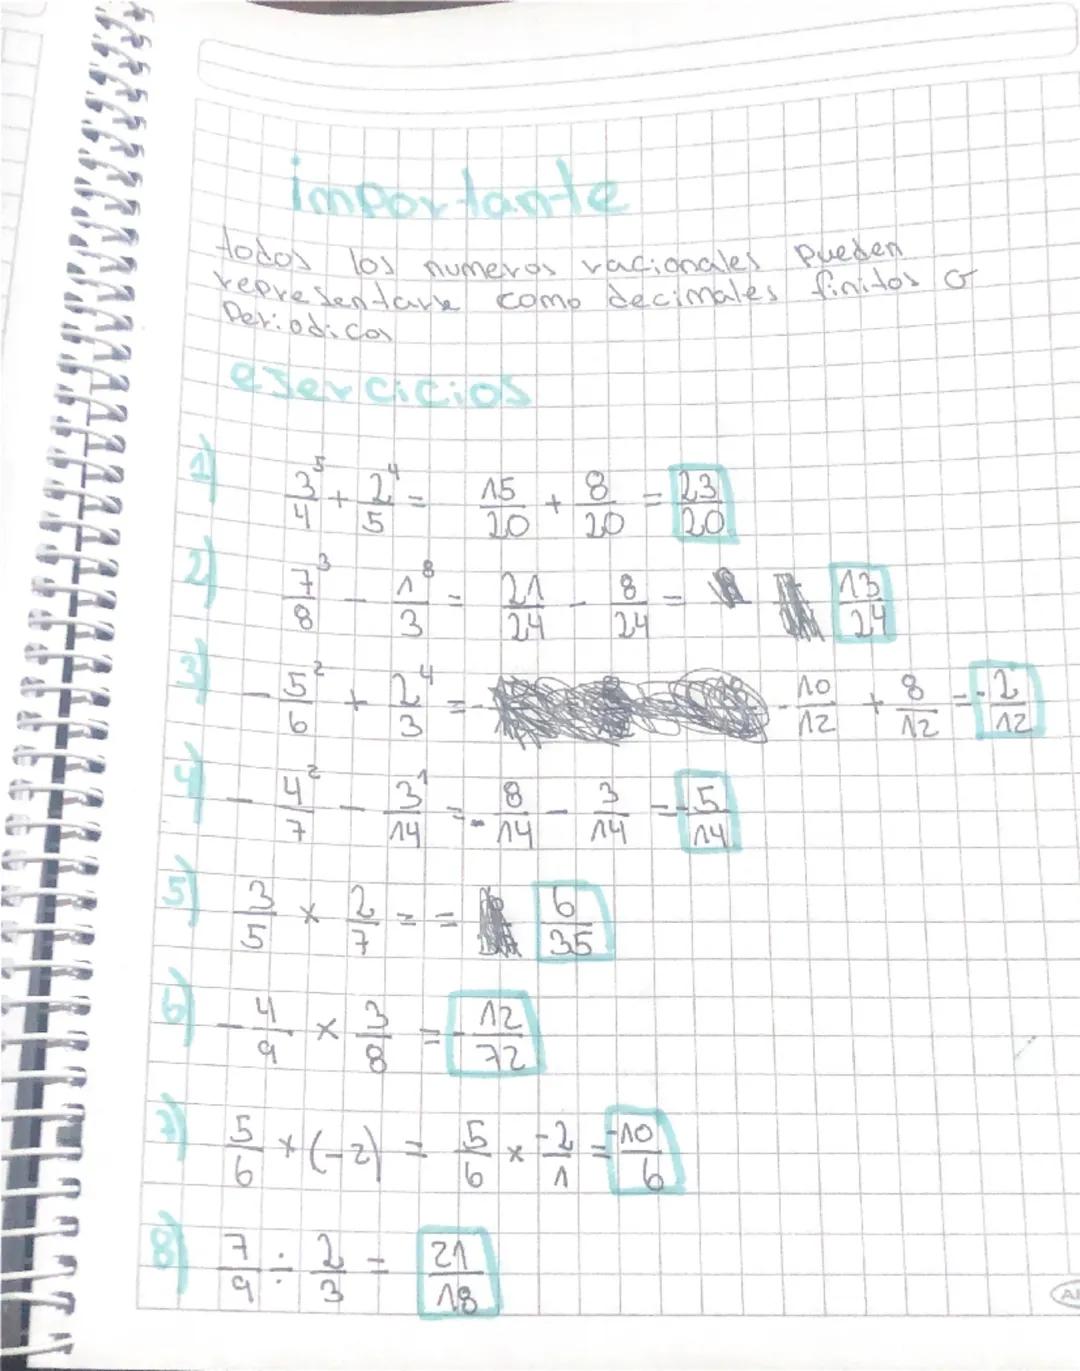 importante
todos los numeros racionales pueden
representarse como decimales finitos o
Periodicos
ejercicios
1) 3/4 ⁵ + 2/5 ⁴ = 15/20 + 8/20 = 23/20
2) 7/8 ³ - 1/3 ⁸ = 21/24 - 8/24 = 13/24
3) - 5/6 ² + 2/3 ⁴ = - - 10/12 + 8/12 = - 2/12
4) - 4/7 ² - 3/14 ¹ = - 8/14 - 3/14 = - 5/14
5) 3/5 × 2/7 = = 6/35
6) - 4/9 × 3/8 = - 12/72
7) 5/6 + (-2) = 5/6 × -2/1 = -10/6
8) 7/9 ÷ 2/3 = 21/18